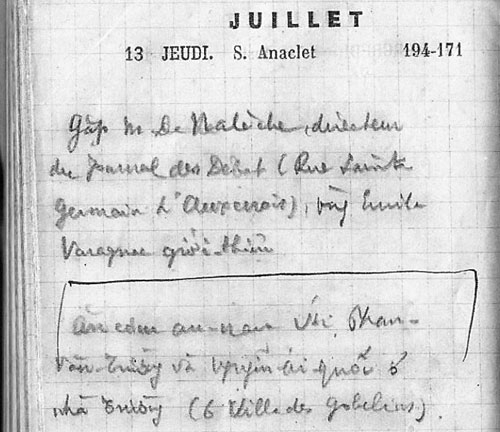 JUILLET
13 JEUDI. S. Anaclet 194-171
Gặp M De Nalèche, directeur
du Journal des Débat (Rue Sainte
Germain L'Auxerrois), ông Emile
Varagnac giới-thiệu
Ăn cơm an-nam với Phan-
Văn-Trường và Nguyễn ái quốc ở
nhà Trường (6 Villa des Gobelins).